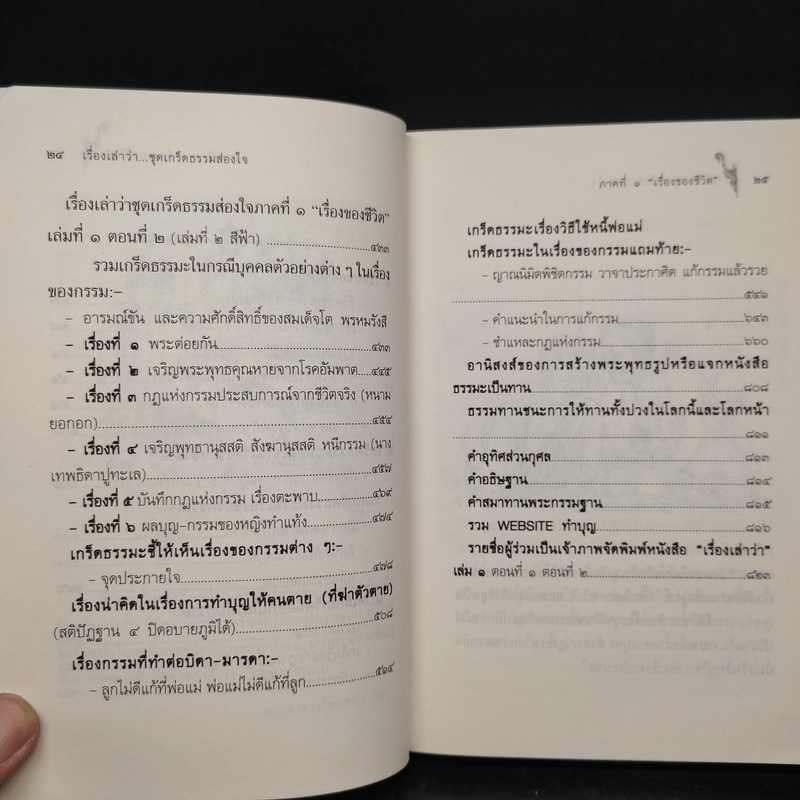 ๒๔ เรื่องเล่าว่า...ชุดเกร็ดธรรมส่องใจ
เรื่องเล่าว่าชุดเกร็ดธรรมส่องใจภาคที่ ๑ “เรื่องของชีวิต”
เล่มที่ ๑ ตอนที่ ๒ (เล่มที่ ๒ สีฟ้า) ...........................๔๓๓
รวมเกร็ดธรรมะในกรณีบุคคลตัวอย่างต่าง ๆ ในเรื่อง
ของกรรม:-
– อารมณ์ขัน และความศักดิ์สิทธิ์ของสมเด็จโต พรหมรังสี
– เรื่องที่ ๑ พระต่อยกัน...........................๔๓๓
– เรื่องที่ ๒ เจริญพระพุทธคุณหายจากโรคอัมพาต.....๔๔๕
– เรื่องที่ ๓ กฎแห่งกรรมประสบการณ์จากชีวิตจริง (หนาม
ยอกอก)...........................๔๕๔
– เรื่องที่ ๔ เจริญพุทธานุสสติ สังฆานุสสติ หนีกรรม (นาง
เทพธิดาปูทะเล)...........................๔๕๗
– เรื่องที่ ๕ บันทึกกฎแห่งกรรม เรื่องตะพาบ.............๔๖๙
– เรื่องที่ ๖ ผลบุญ-กรรมของหญิงทำแท้ง.............๔๗๔
เกร็ดธรรมะชี้ให้เห็นเรื่องของกรรมต่าง ๆ:-
– จุดประกายใจ...........................๔๗๘
เรื่องน่าคิดในเรื่องการทำบุญให้คนตาย (ที่ฆ่าตัวตาย)
(สติปัฏฐาน ๔ ปิดอบายภูมิได้)...........................๕๐๘
เรื่องกรรมที่ทำต่อบิดา-มารดา:-
– ลูกไม่ดีแก้ที่พ่อแม่ พ่อแม่ไม่ดีแก้ที่ลูก.............๕๑๔
ภาคที่ ๑ “เรื่องของชีวิต” ๒๕
เกร็ดธรรมะเรื่องวิธีใช้หนี้พ่อแม่
เกร็ดธรรมะในเรื่องของกรรมแถมท้าย:-
– ญาณนิมิตพิชิตกรรม วาจาประกาศิต แก้กรรมแล้วรวย
...........................๕๔๑
– คำแนะนำในการแก้กรรม...........................๖๔๓
– ชำแหละกฎแห่งกรรม...........................๖๖๐
อานิสงส์ของการสร้างพระพุทธรูปหรือแจกหนังสือ
ธรรมะเป็นทาน...........................๘๐๘
ธรรมทานชนะการให้ทานทั้งปวงในโลกนี้และโลกหน้า
...........................๘๑๑
คำอุทิศส่วนกุศล...........................๘๑๓
คำอธิษฐาน...........................๘๑๔
คำสมาทานพระกรรมฐาน...........................๘๑๕
รวม WEBSITE ทำบุญ...........................๘๑๖
รายชื่อผู้ร่วมเป็นเจ้าภาพจัดพิมพ์หนังสือ “เรื่องเล่าว่า”
เล่ม ๑ ตอนที่ ๑ ตอนที่ ๒...........................๘๒๓